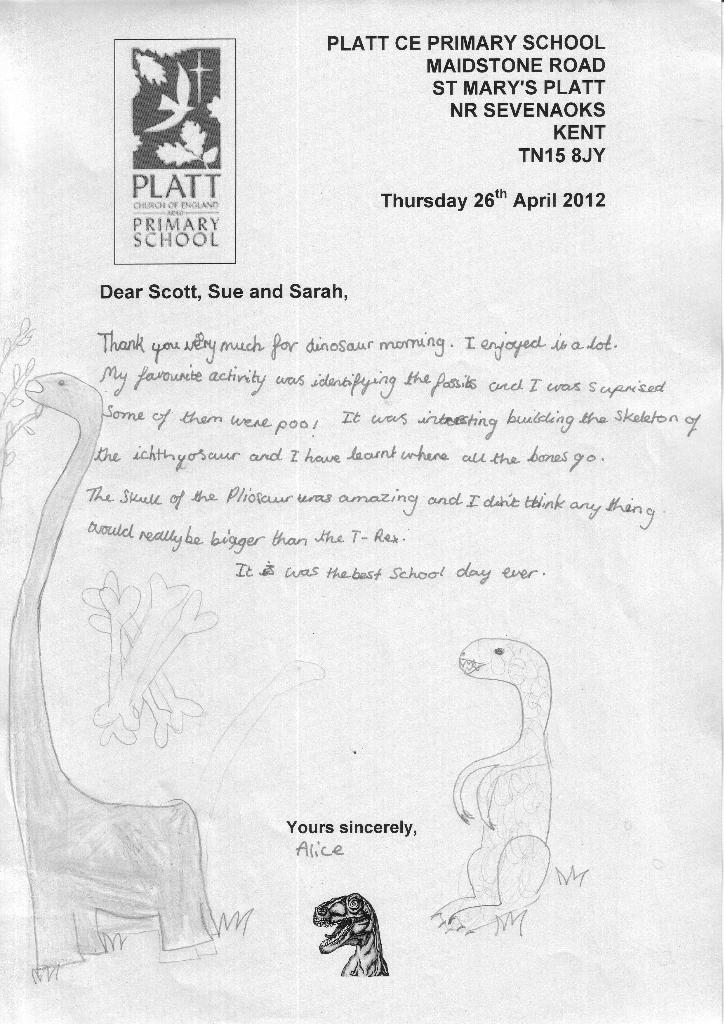 PLATT
CHURCH OF ENGLAND
PRIMARY
SCHOOL
PLATT CE PRIMARY SCHOOL
MAIDSTONE ROAD
ST MARY'S PLATT
NR SEVENAOKS
KENT
TN15 8JY
Thursday 26th April 2012
Dear Scott, Sue and Sarah,
Thank you very much for dinosaur morning. I enjoyed is a lot.
My favourite activity was identifying the fossils and I was suprised
Some of them were poo! It was interesting building the skeleton of
the ichthyosaur and I have learnt where all the bones go.
The Skull of the Pliosaur was amazing and I didn't think any thing
would really be bigger than the T-Rex.
It was the best School day ever.
Yours sincerely,
Alice